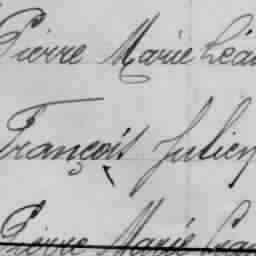 Pierre Marie Léa
François Julien
Pierre Marie Léa